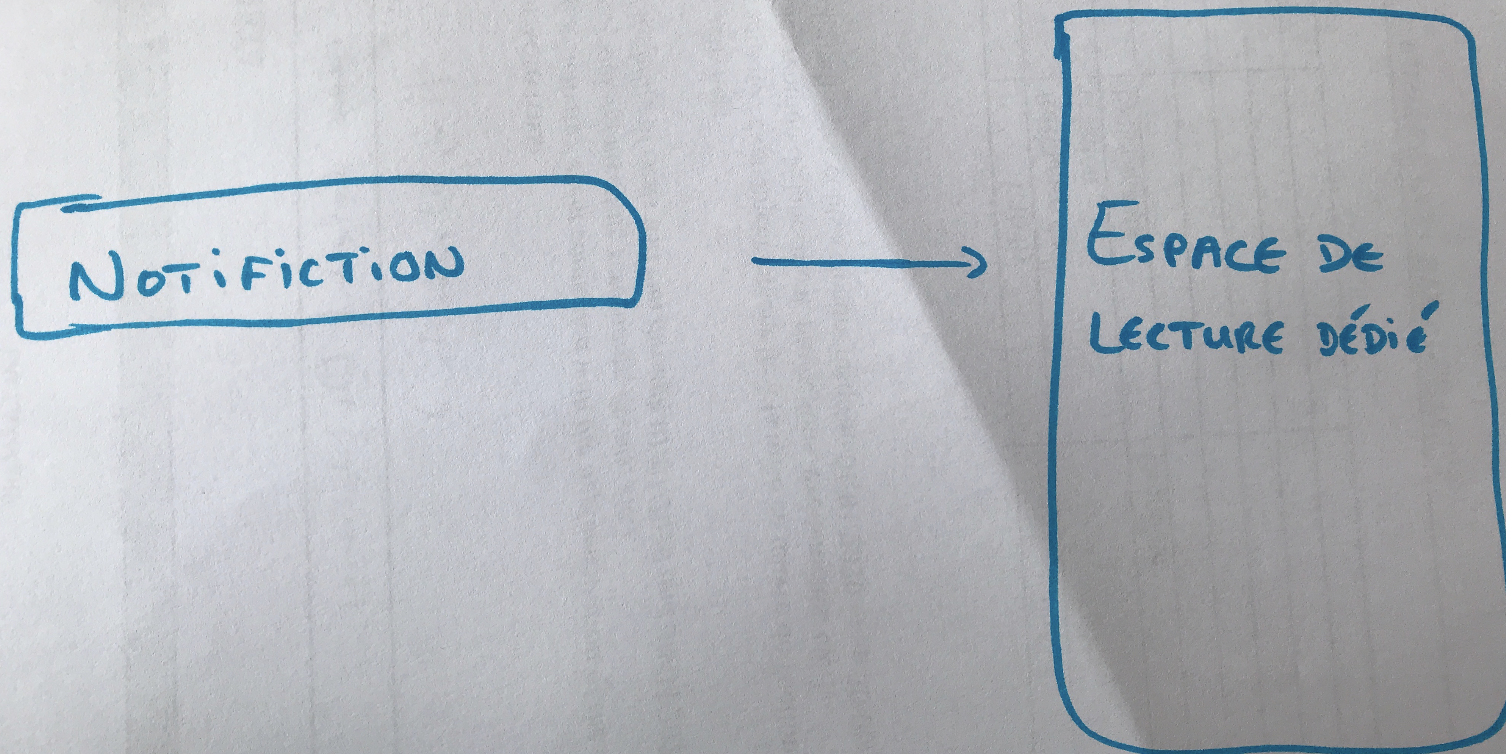 NOTiFiCTiON
ESPACE DE
LECTURE DÉDiÉ